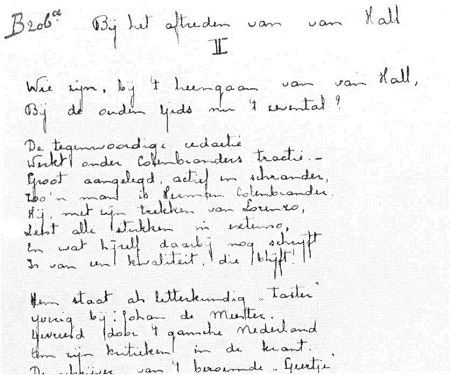 Bij het aftreden van van Hall
II
Wie zijn, bij 't heengaan van van Hall,
Bij de ouden Gids nu 't zevental?
De tegenwoordige redactie
Werkt onder Colenbranders tractie. –
Groot aangelegd, actief en schrander,
Zoo'n man is Herman Colenbrander.
Hij, met zijn trekken van Lorenzo,
Leest alle stukken in extenso,
En wat hijzelf daarbij nog schrijft
Is van een kwaliteit, die blijft!
Hem staat als letterkundig "Taster"
ijverig bij: Johan de Meester.
Geveerd door 't gansche Nederland
Om zijn kritieken in de krant.
De schrijver van 't beroemde "Geertje"